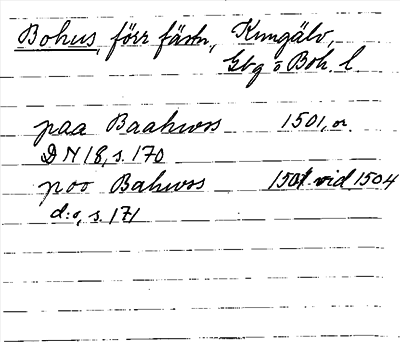 Bohus, förr fästn., Kungälv,
Gbg o Boh. l.
paa Baahwss 1501, or.
DN 18, s. 170
poo Bahwss vid 1504
d:o, s. 171